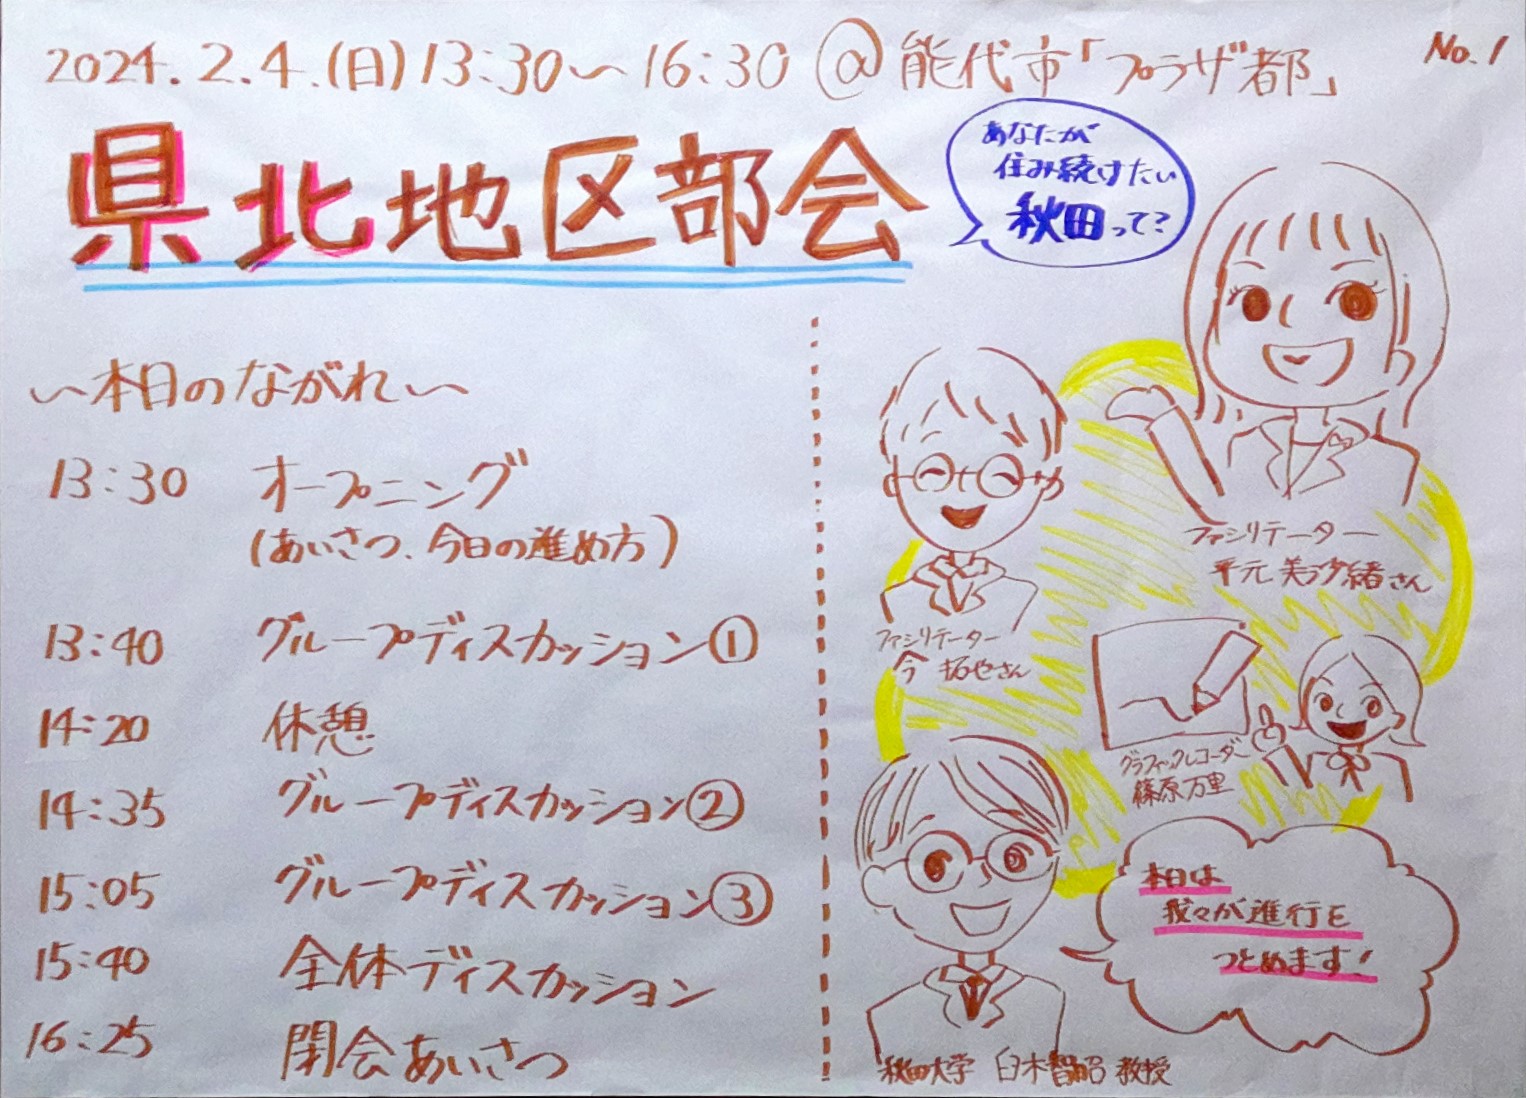 2024.2.4.(日)13:30〜16:30@能代市「プラザ都」
No.1
県北地区部会
あなたが
住み続けたい
秋田って?
〜本日のながれ〜
13:30 オープニング
(あいさつ、今日の進め方)
13:40 グループディスカッション①
14:20 休憩
14:35 グループディスカッション②
15:05 グループディスカッション③
15:40 全体ディスカッション
16:25 閉会あいさつ
ファシリテーター
平元 美沙緒さん
ファシリテーター
今 拓也さん
グラフィックレコーダー
篠原万里
本日は
我々が進行を
つとめます!
秋田大学 臼木智昭 教授